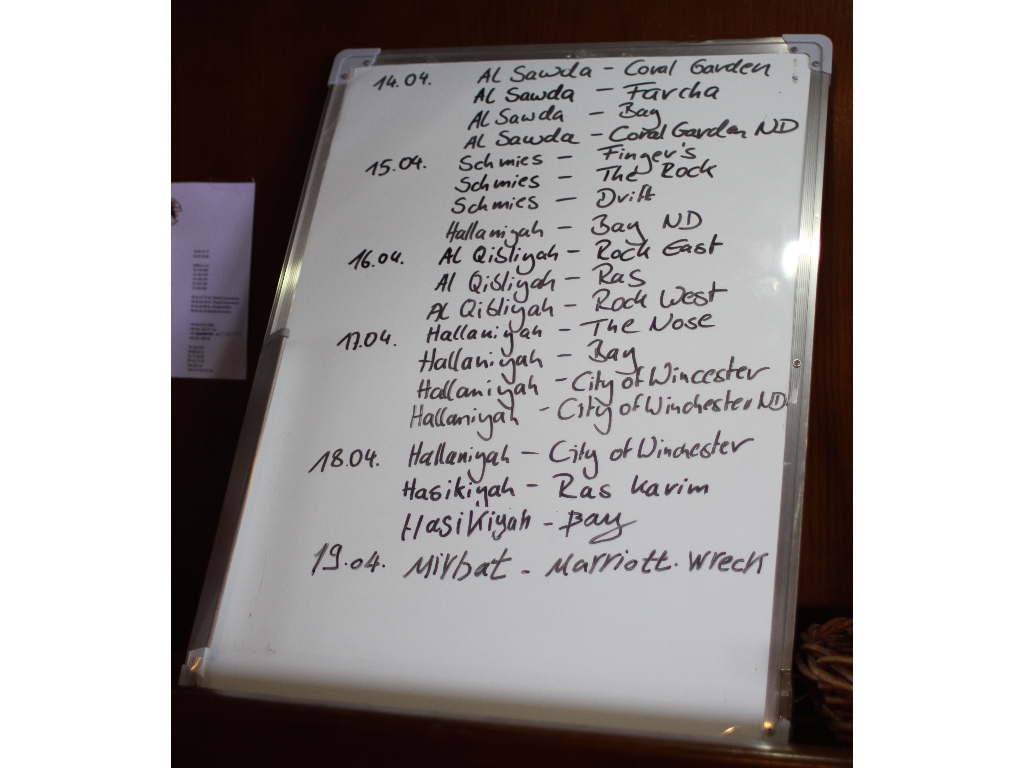 14.04. Al Sawda - Coral Garden
Al Sawda - Farcha
Al Sawda - Bay
Al Sawda - Coral Garden ND
15.04. Schmies - Finger's
Schmies - The Rock
Schmies - Drift
Hallaniyah - Bay ND
16.04. Al Qibliyah - Rock East
Al Qibliyah - Ras
Al Qibliyah - Rock West
17.04. Hallaniyah - The Nose
Hallaniyah - Bay
Hallaniyah - City of Wincester
Hallaniyah - City of Winchester ND
18.04. Hallaniyah - City of Winchester
Hasikiyah - Ras Karim
Hasikiyah - Bay
19.04. Mirbat - Marriott. Wreck